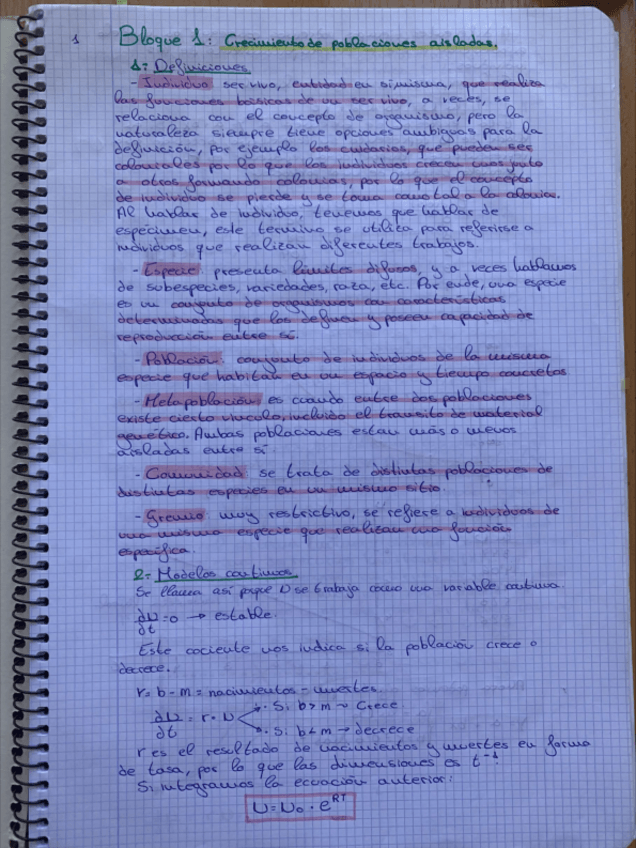 1
Bloque 1: Crecimiento de poblaciones aisladas.
1= Definiciones
- Individuo: ser vivo, entidad en si misma, que realiza
las funciones básicas de un ser vivo, a veces, se
relaciona con el concepto de organismo, pero la
naturaleza siempre tiene opciones ambiguas para la
definición, por ejemplo los cnidarios, que pueden ser
coloniales por lo que los individuos crecen unos junto
a otros formando colonias, por lo que el concepto
de individuo se pierde y se toma como tal a la colonia.
Al hablar de individuo, tenemos que hablar de
espécimen, este termino se utiliza para referirse a
individuos que realizan diferentes trabajos.
- Especie: presenta límites difusos, y a veces hablamos
de subespecies, variedades, raza, etc. Por ende, una especie
es un conjunto de organismos con características
determinadas que los definen y poseen capacidad de
reproducción entre sí.
- Población: conjunto de individuos de la misma
especie que habitan en un espacio y tiempo concretos
- Metapoblación: es cuando entre dos poblaciones
existe cierto vínculo, incluido el transito de material
genético. Ambas poblaciones estan más o menos
aisladas entre sí.
- Comunidad: se trata de distintas poblaciones de
distintas especies en un mismo sitio.
- Gremio: muy restrictivo, se refiere a individuos de
una misma especie que realizan una función
específica.
2= Modelos continuos
Se llama así porque N se trabaja como una variable continua
dN/dt = 0 → estable.
Este cociente nos indica si la población crece o
decrece.
r = b - m = nacimientos - muertes.
· Si b > m → Crece
dN/dt = r · N
· Si b < m → decrece
r es el resultado de nacimientos y muertes en forma
de tasa, por lo que las dimensiones es t⁻¹.
Si integramos la ecuación anterior:
N = N₀ · e^RT